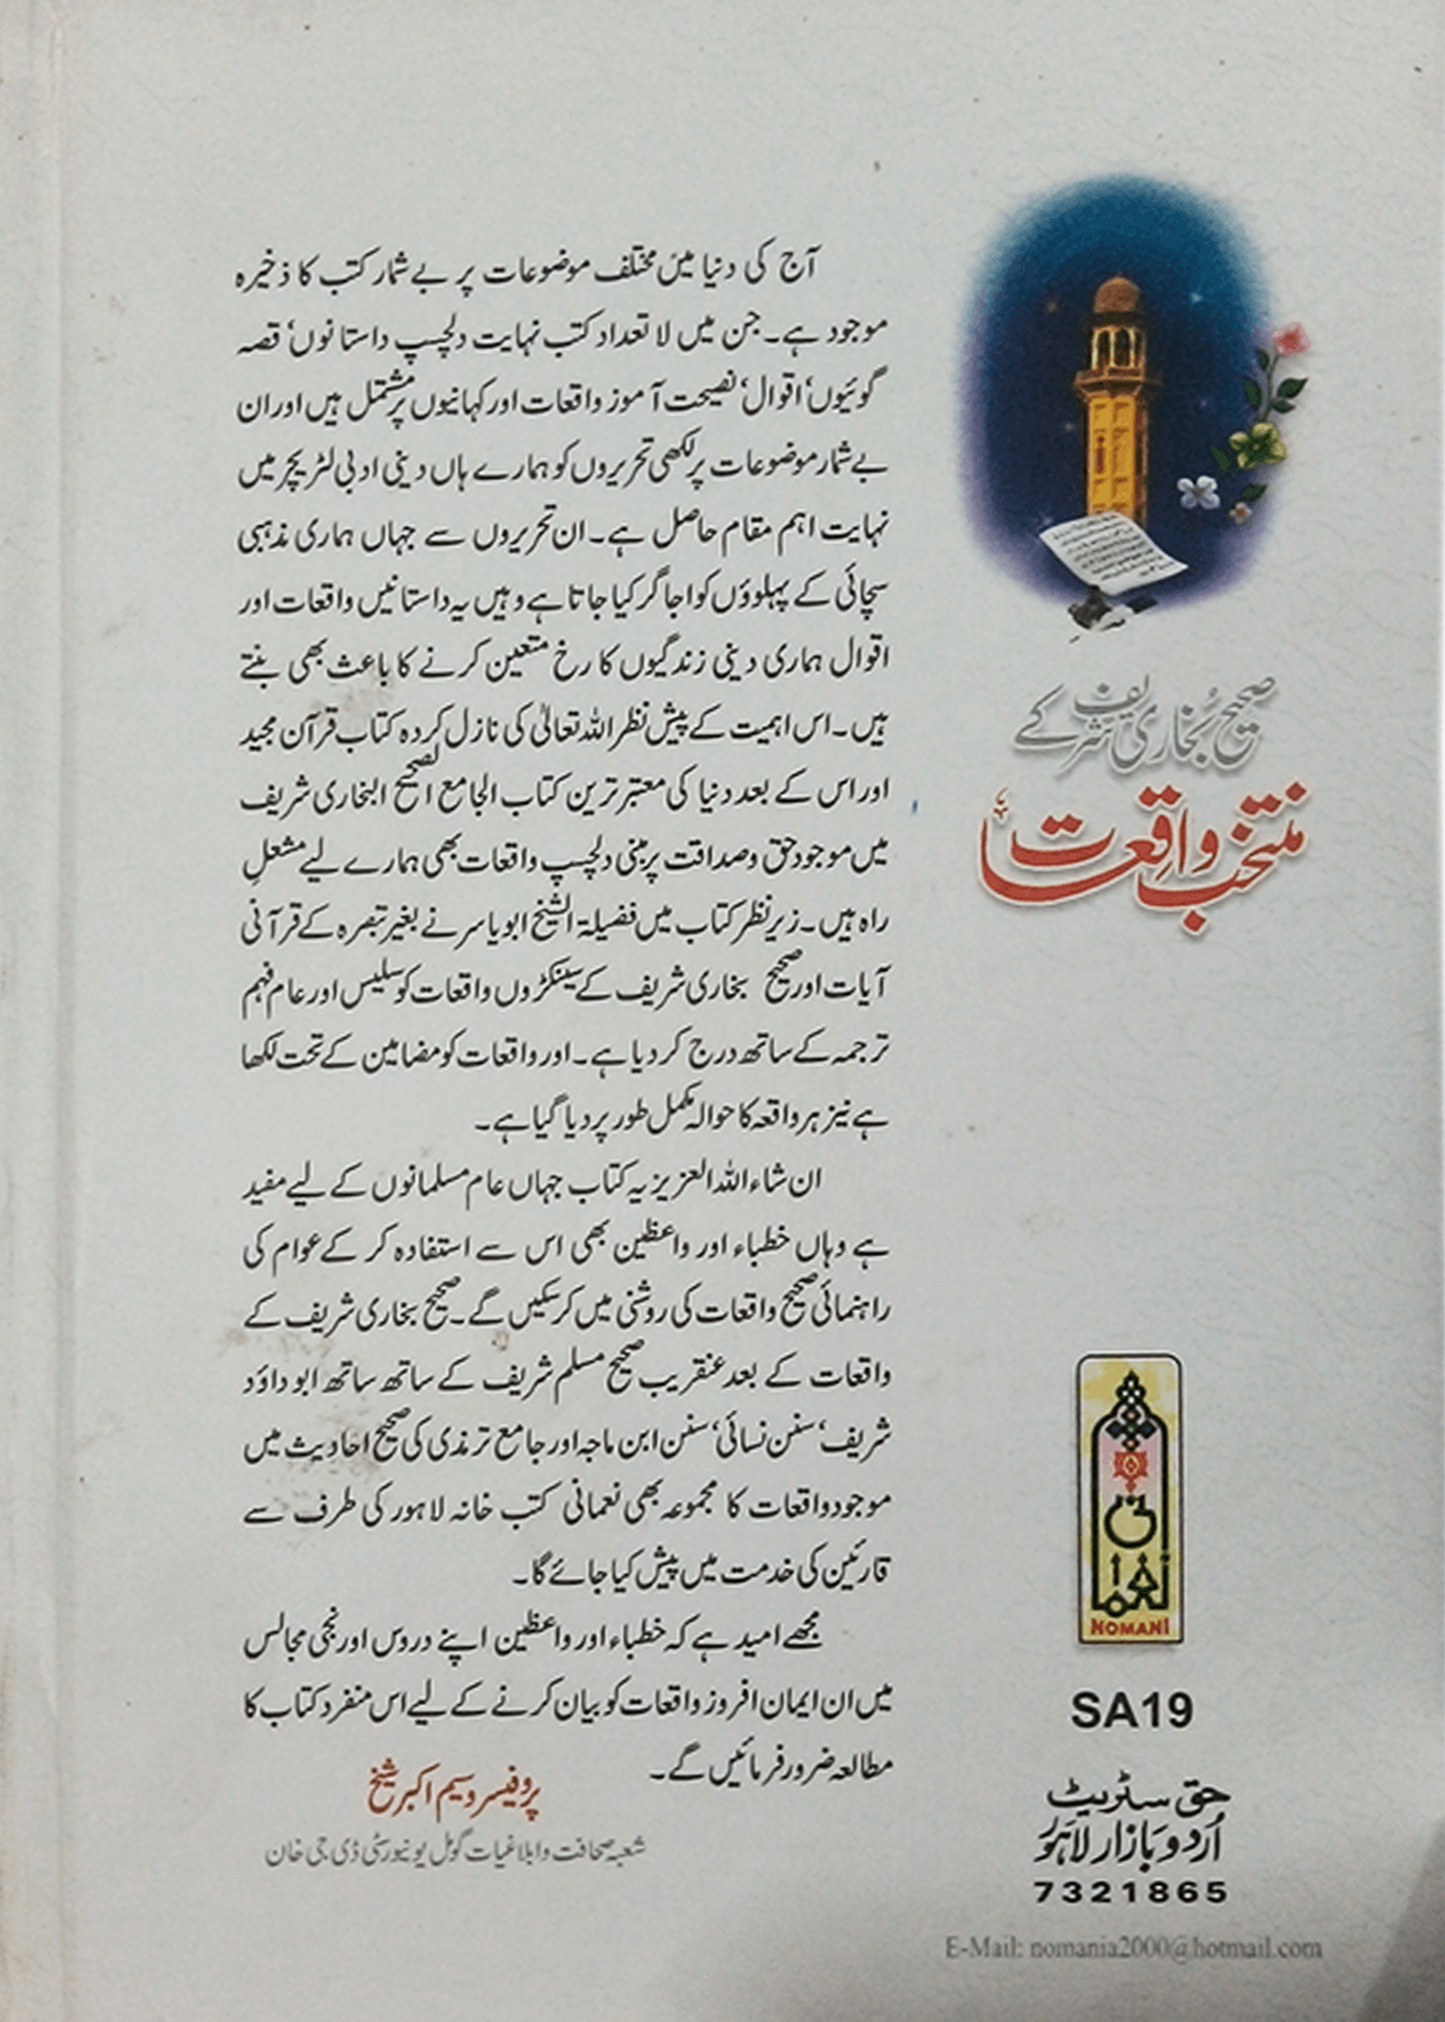 آج کی دنیا میں مختلف موضوعات پر بے شمار کتب کا ذخیرہ
موجود ہے۔ جن میں لا تعداد کتب نہایت دلچسپ داستانوں‘ قصہ
گوئیوں‘ اقوال‘ نصیحت آموز واقعات اور کہانیوں پر مشتمل ہیں اور ان
بے شمار موضوعات پر لکھی تحریروں کو ہمارے ہاں دینی ادبی لٹریچر میں
نہایت اہم مقام حاصل ہے۔ ان تحریروں سے جہاں ہماری مذہبی
سچائی کے پہلوؤں کو اجاگر کیا جاتا ہے وہیں یہ داستانیں واقعات اور
اقوال ہماری دینی زندگیوں کا رخ متعین کرنے کا باعث بھی بنتے
ہیں۔ اس اہمیت کے پیش نظر اللہ تعالیٰ کی نازل کردہ کتاب قرآن مجید
اور اس کے بعد دنیا کی معتبر ترین کتاب الجامع الصحیح البخاری شریف
میں موجود حق و صداقت پر مبنی دلچسپ واقعات بھی ہمارے لیے مشعلِ
راہ ہیں۔ زیر نظر کتاب میں فضیلۃ الشیخ ابو یاسر نے بغیر تبصرہ کے قرآنی
آیات اور صحیح بخاری شریف کے سینکڑوں واقعات کو سلیس اور عام فہم
ترجمہ کے ساتھ درج کر دیا ہے۔ اور واقعات کو مضامین کے تحت لکھا
ہے نیز ہر واقعہ کا حوالہ مکمل طور پر دیا گیا ہے۔
ان شاء اللہ العزیز یہ کتاب جہاں عام مسلمانوں کے لیے مفید
ہے وہاں خطباء اور واعظین بھی اس سے استفادہ کر کے عوام کی
راہنمائی صحیح واقعات کی روشنی میں کر سکیں گے۔ صحیح بخاری شریف کے
واقعات کے بعد عنقریب صحیح مسلم شریف کے ساتھ ساتھ ابو داؤد
شریف‘ سنن نسائی‘ سنن ابن ماجہ اور جامع ترمذی کی صحیح احادیث میں
موجود واقعات کا مجموعہ بھی نعمانی کتب خانہ لاہور کی طرف سے
قارئین کی خدمت میں پیش کیا جائے گا۔
مجھے امید ہے کہ خطباء اور واعظین اپنے دروس اور نجی مجالس
میں ان ایمان افروز واقعات کو بیان کرنے کے لیے اس منفرد کتاب کا
مطالعہ ضرور فرمائیں گے۔
پروفیسر وسیم اکبر شیخ
شعبہ صحافت و ابلاغیات گومل یونیورسٹی ڈی جی خان
صحیح بُخاری شریف کے
منتخب واقعات
نعمانی
NOMANI
SA19
حق سٹریٹ
اُردو بازار لاہور
7321865
E-Mail: nomania2000@hotmail.com